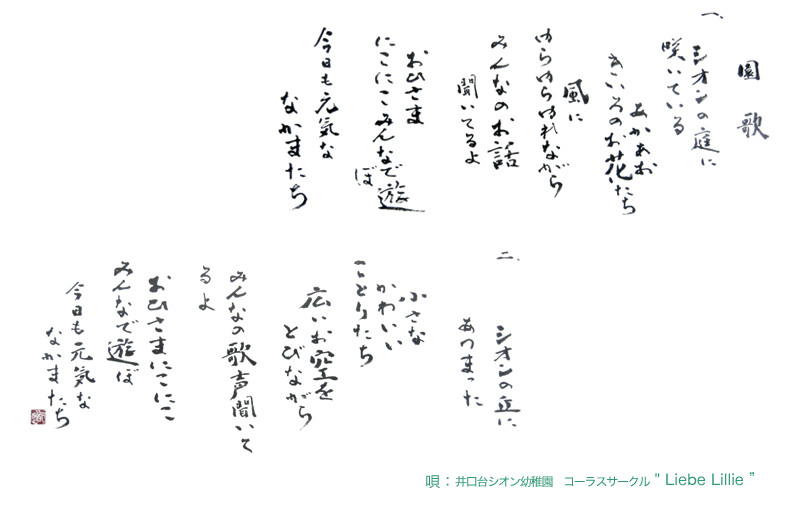 園歌
一、
シオンの庭に
咲いている
あかあお
きいろのお花たち
風に
ゆらゆらゆれながら
みんなのお話
聞いてるよ
おひさま
にこにこみんなで遊
ぼ
今日も元気な
なかまたち
二、
シオンの丘に
あつまった
小さな
かわいい
ことりたち
広いお空を
とびながら
みんなの歌声聞いて
るよ
おひさまにこにこ
みんなで遊ぼ
今日も元気な
なかまたち
唄：井口台シオン幼稚園　コーラスサークル " Liebe Lillie ”